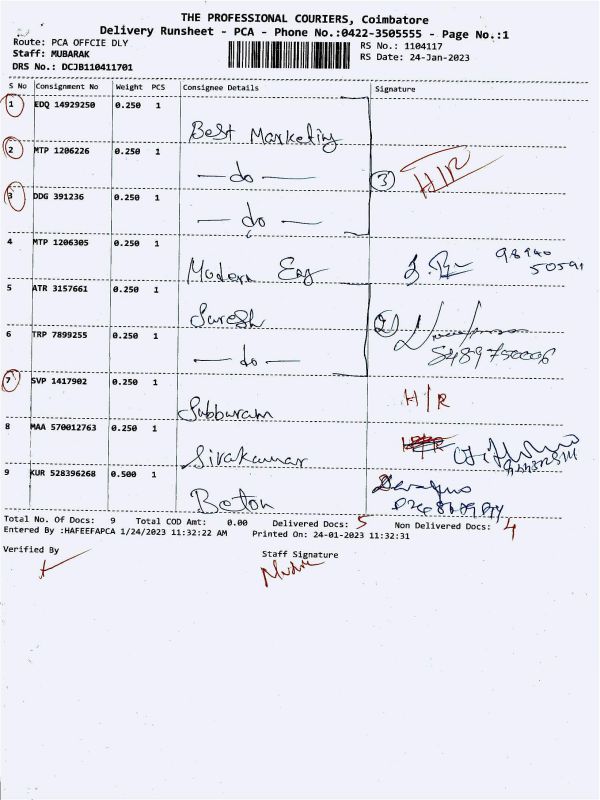 THE PROFESSIONAL COURIERS, Coimbatore
Delivery Runsheet - PCA - Phone No.:0422-3505555 - Page No.:1
Route: PCA OFFCIE DLY
Staff: MUBARAK
DRS No.: DCJB110411701
RS No.: 1104117
RS Date: 24-Jan-2023
S No Consignment No Weight PCS Consignee Details Signature
1 EDQ 14929250 0.250 1
Best Marketing
2 MTP 1206226 0.250 1
— do —
3 H/R
3 DDG 391236 0.250 1
— do —
4 MTP 1206305 0.250 1
Modern Eng
98940
50591
5 ATR 3157661 0.250 1
Suresh
2
6 TRP 7899255 0.250 1
— do —
8489750006
7 SVP 1417902 0.250 1
Subburam H/R
8 MAA 570012763 0.250 1
Sivakumar
9 KUR 528396268 0.500 1
Boton
Total No. Of Docs: 9 Total COD Amt: 0.00 Delivered Docs: 5 Non Delivered Docs: 4
Entered By :HAFEEFAPCA 1/24/2023 11:32:22 AM Printed On: 24-01-2023 11:32:31
Verified By
Staff Signature